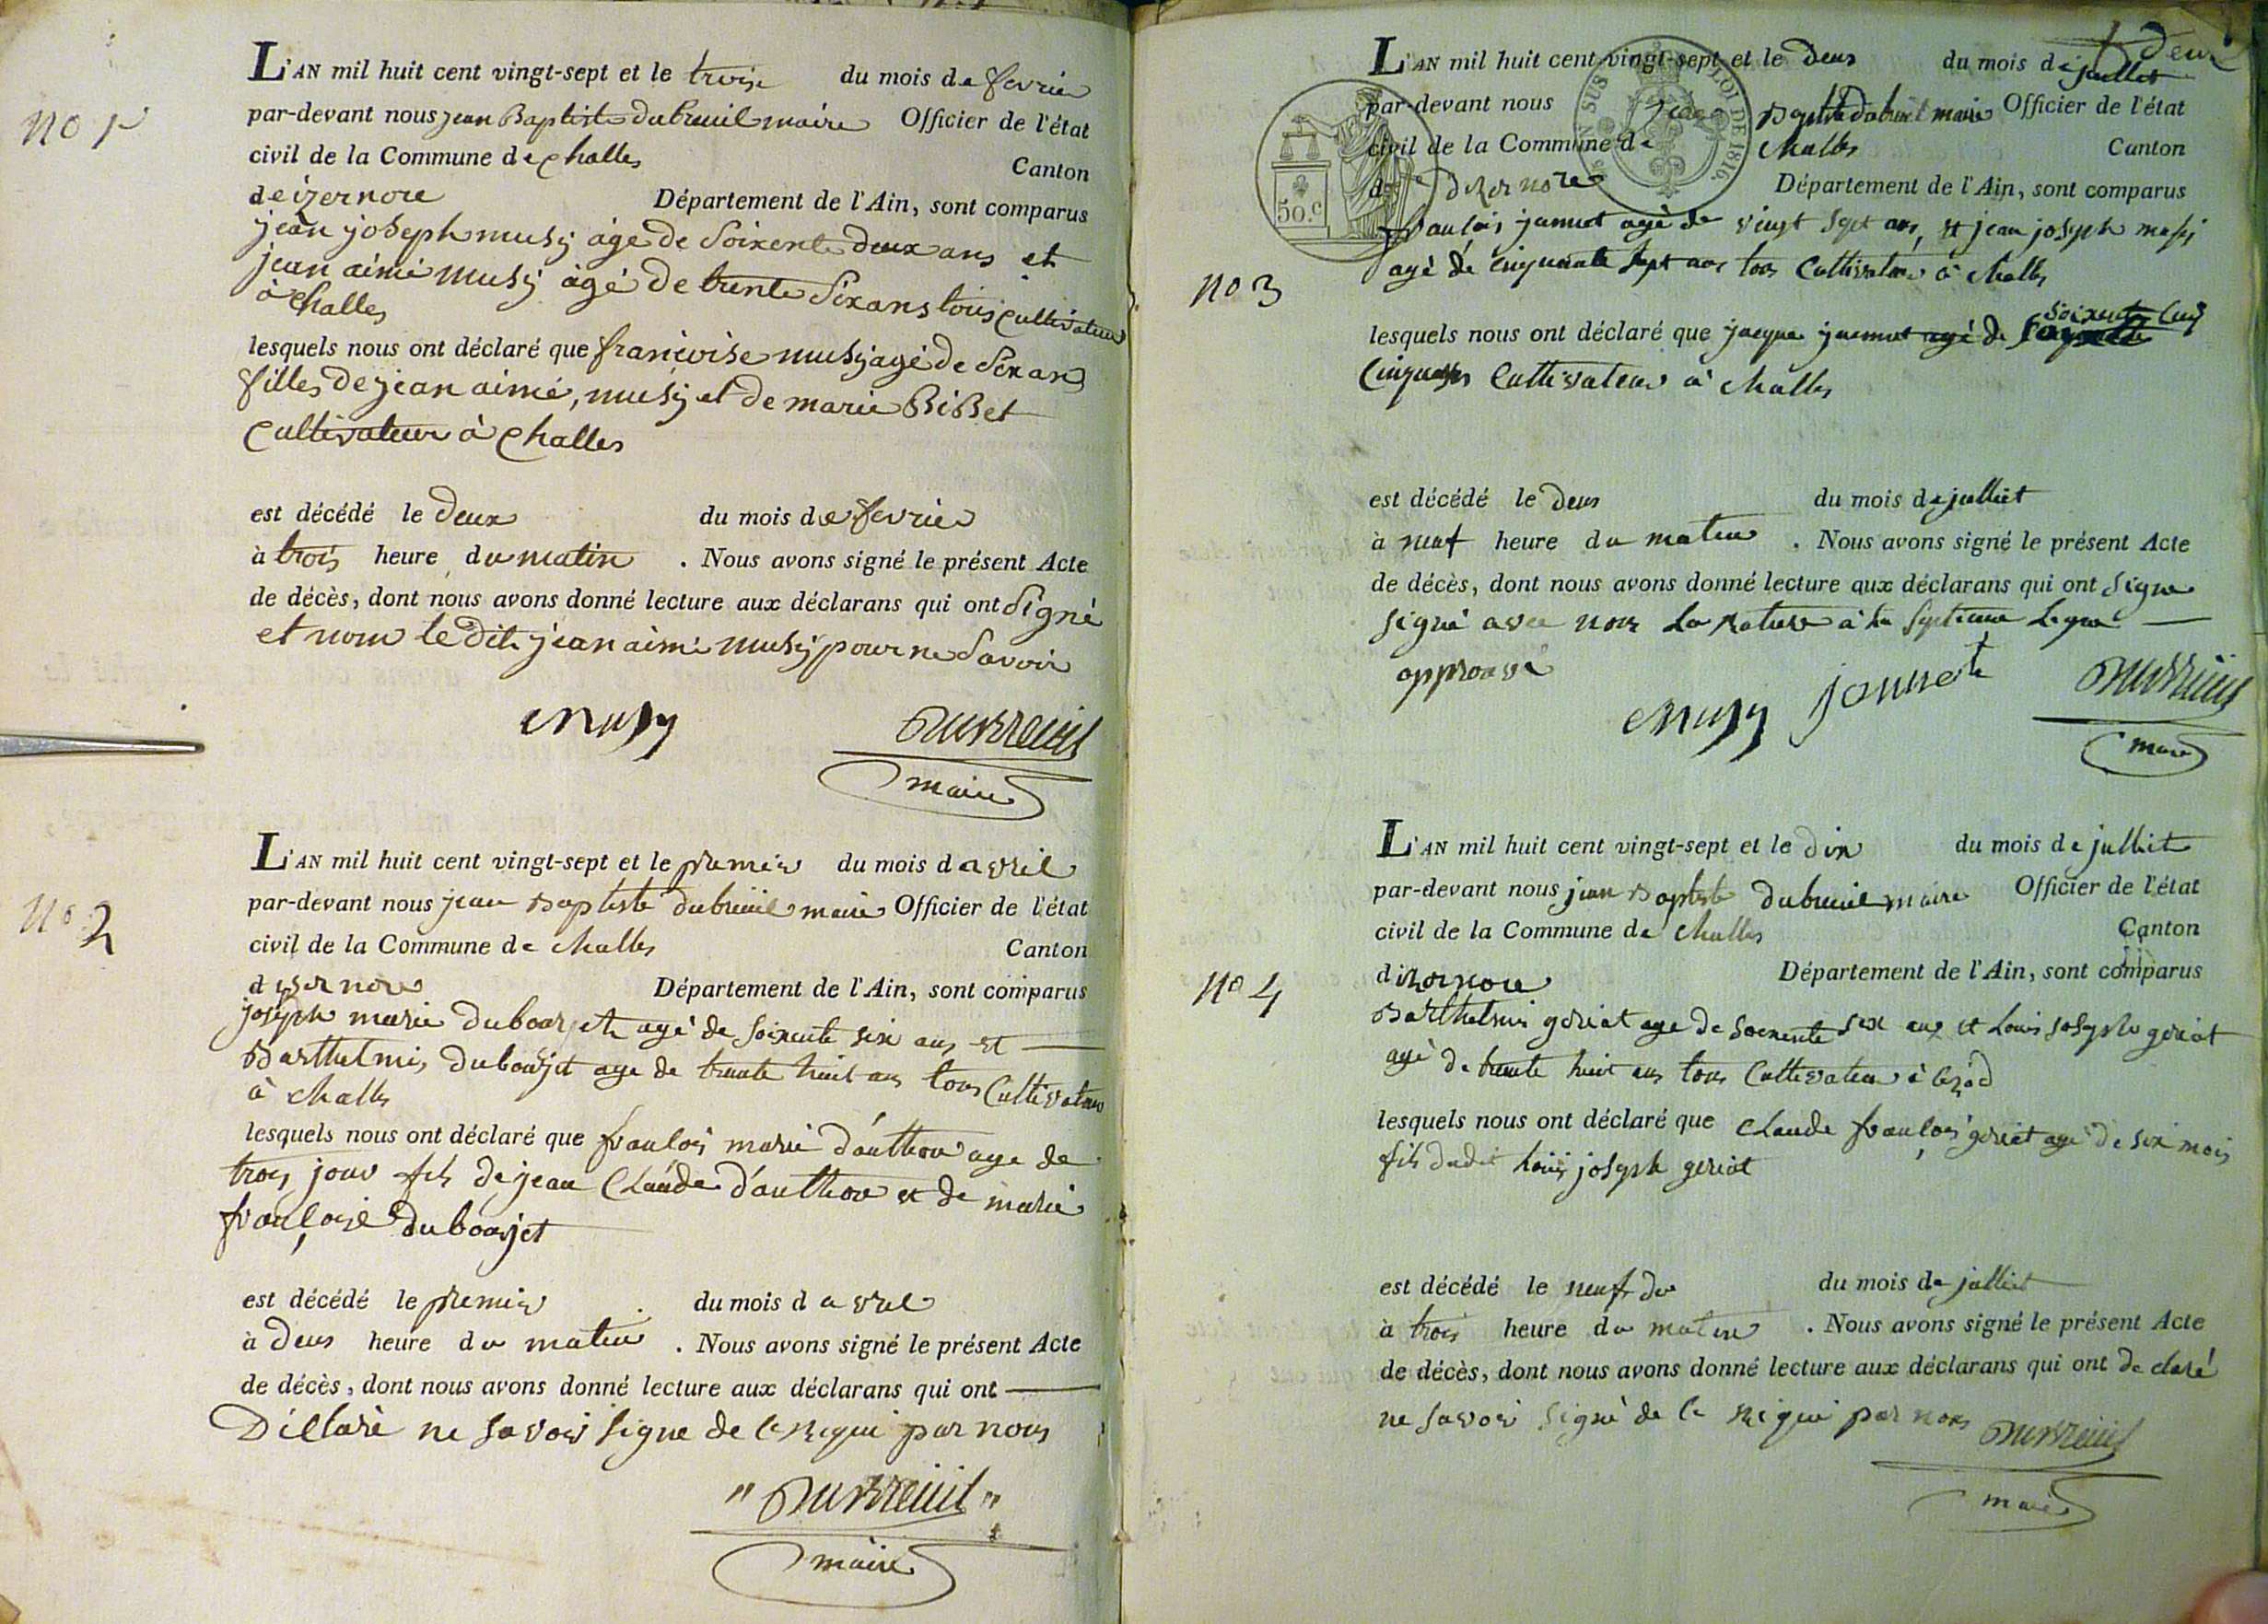 no 1r
L'AN mil huit cent vingt-sept et le trois du mois de fevrier
par-devant nous jean Baptiste dubreuil maire Officier de l'état
civil de la Commune de challes Canton
de izernore Département de l'Ain, sont comparus
jean joseph musÿ âgé de soixente deux ans et
jean aimé musÿ âgé de trente six ans tous cultivateur
à challes
lesquels nous ont déclaré que françoise musÿ agé de six ans
filles de jean aimé, musÿ et de marie BiBet
cultivateur à challes
est décédé le deux du mois de fevrier
à trois heure du matin . Nous avons signé le présent Acte
de décès, dont nous avons donné lecture aux déclarans qui ont signé
et nom le dit jean aimé musÿ pour ne savoir
musy dubreuil
maire
no 2
L'AN mil huit cent vingt-sept et le premier du mois d avril
par-devant nous jean Baptiste dubreüil maire Officier de l'état
civil de la Commune de challes Canton
d yser nore Département de l'Ain, sont comparus
joseph marie Dubourjet agé de soixente six ans et
Barthelmis Dubourjet age de trente huit ans tous Cultivateur
à challes
lesquels nous ont déclaré que franlois marie d'authon age de
trois jour fils de jean Claude d'authon et de marie
françoise dubourjet
est décédé le premier du mois d avril
à deus heure du matin . Nous avons signé le présent Acte
de décès, dont nous avons donné lecture aux déclarans qui ont
Dillaré ne savoir signe de ce requi par nous
" dubreuil "
maire
deux
L'AN mil huit cent vingt-sept et le deus du mois de juillet
par-devant nous jean Baptiste dubreuil maire Officier de l'état
civil de la Commune de challes Canton
de dizernore Département de l'Ain, sont comparus
50.c
TIMBRE EN SUS
LOI DE 1816.
franlois jannet agé de vingt sept ans, et jean joseph musÿ
agé de cinquante sept ans tous Cultivateur à challes
no 3
soixente cinq
lesquels nous ont déclaré que jacque jannet agé de
Cultivateur à challes
est décédé le deus du mois de julliet
à neuf heure du matin . Nous avons signé le présent Acte
de décès, dont nous avons donné lecture aux déclarans qui ont signe
signé avec nous La rature à la septieme Ligne
approuvé
musy jannet dubreuil
maire
L'AN mil huit cent vingt-sept et le dix du mois de julliet
par-devant nous jean Baptiste dubreuil maire Officier de l'état
civil de la Commune de challes Canton
dizernore Département de l'Ain, sont comparus
no 4
Barthelmi goriat age de soixente six ans et Louis joseph goriat
agé de trente huit ans tous Cultivateur à
lesquels nous ont déclaré que Claude françois goriat agé de six mois
fils dudit louis joseph goriat
est décédé le neuf du du mois de julliet
à trois heure du matin . Nous avons signé le présent Acte
de décès, dont nous avons donné lecture aux déclarans qui ont declaré
ne savoir signé de ce requi par nous dubreuil
maire